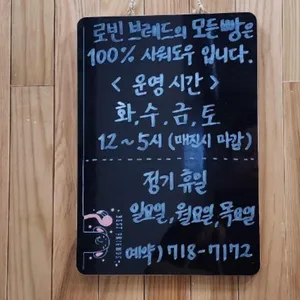 로빈 브레드의 모든 빵은
100% 사워도우 입니다.
< 운영 시간 >
화, 수, 금, 토
12 ~ 5시 (매진시 마감)
정기 휴일
일요일, 월요일, 목요일
예약) 718-7172